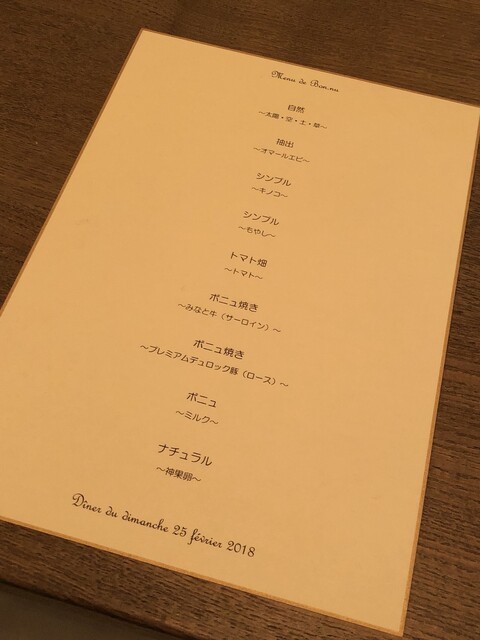 Menu de Bon.nu
自然
～太陽・空・土・草～
抽出
～オマールエビ～
シンプル
～キノコ～
シンプル
～もやし～
トマト畑
～トマト～
ボニュ焼き
～みなと牛（サーロイン）～
ボニュ焼き
～プレミアムデュロック豚（ロース）～
ボニュ
～ミルク～
ナチュラル
～神果卵～
Dîner du dimanche 25 février 2018